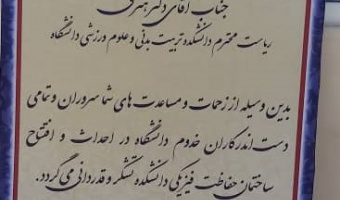 جناب آقای دکتر هنری
ریاست محترم دانشکده تربیت بدنی و علوم ورزشی دانشگاه
بدین وسیله از زحمات و مساعدت های شما سروران و تمامی
دست اندرکاران خدوم دانشگاه در احداث و افتتاح
ساختمان حفاظت فیزیکی دانشکده تشکر و قدردانی می گردد.